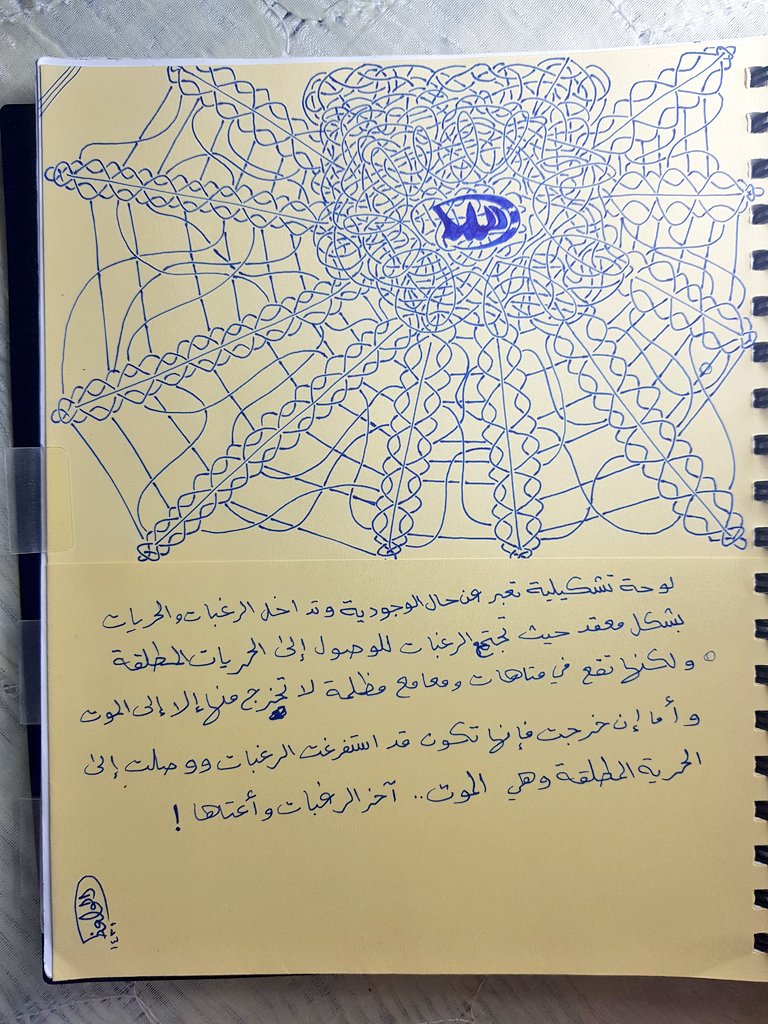 لوحة تشكيلية تعبر عن حال الوجودية وتداخل الرغبات والحريات
بشكل معقد حيث تجتمع الرغبات للوصول إلى الحريات المطلقة
ولكنها تقع في متاهات ومعامع مظلمة لا تخرج منها إلا إلى الموت
وأما إن خرجت فإنها تكون قد استفرغت الرغبات ووصلت إلى
الحرية المطلقة وهي الموت.. آخر الرغبات وأعتاها!